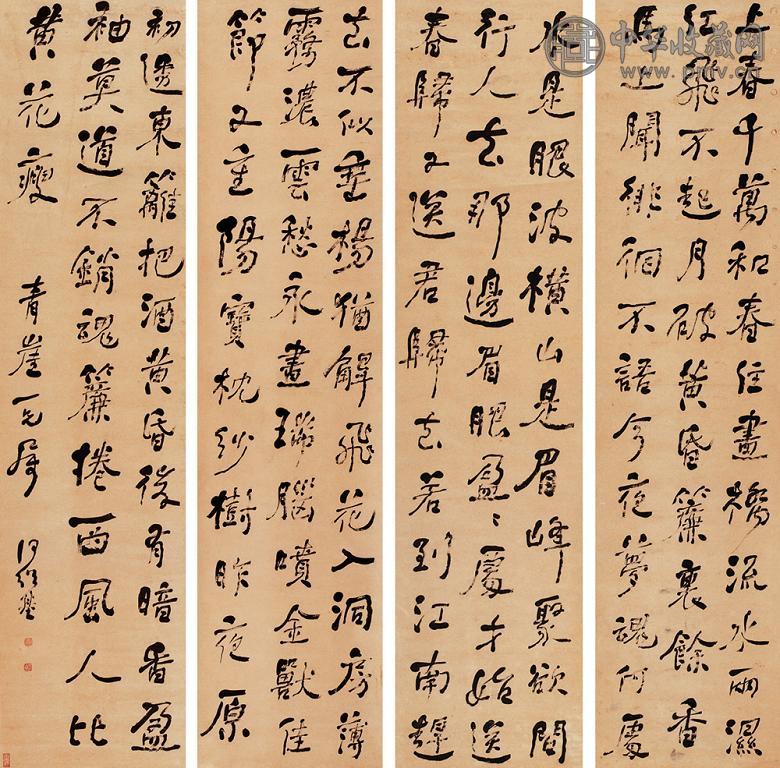 上春千萬和春住畫橋流水雨濕
紅飛不起月破黃昏簾裏餘香
馬上聞徘徊不語今夜夢魂何處
水是眼波橫山是眉峰聚欲問
行人去那邊眉眼盈〻處才始送
春歸又送君歸去若到江南趕
去不似垂楊猶解飛花入洞房薄
霧濃雲愁永晝瑞腦噴金獸佳
節又重陽寶枕紗櫥昨夜原
初透東籬把酒黃昏後有暗香盈
袖莫道不銷魂簾捲西風人比
黃花瘦
青崖一兄屬
何紹基
中华收藏网